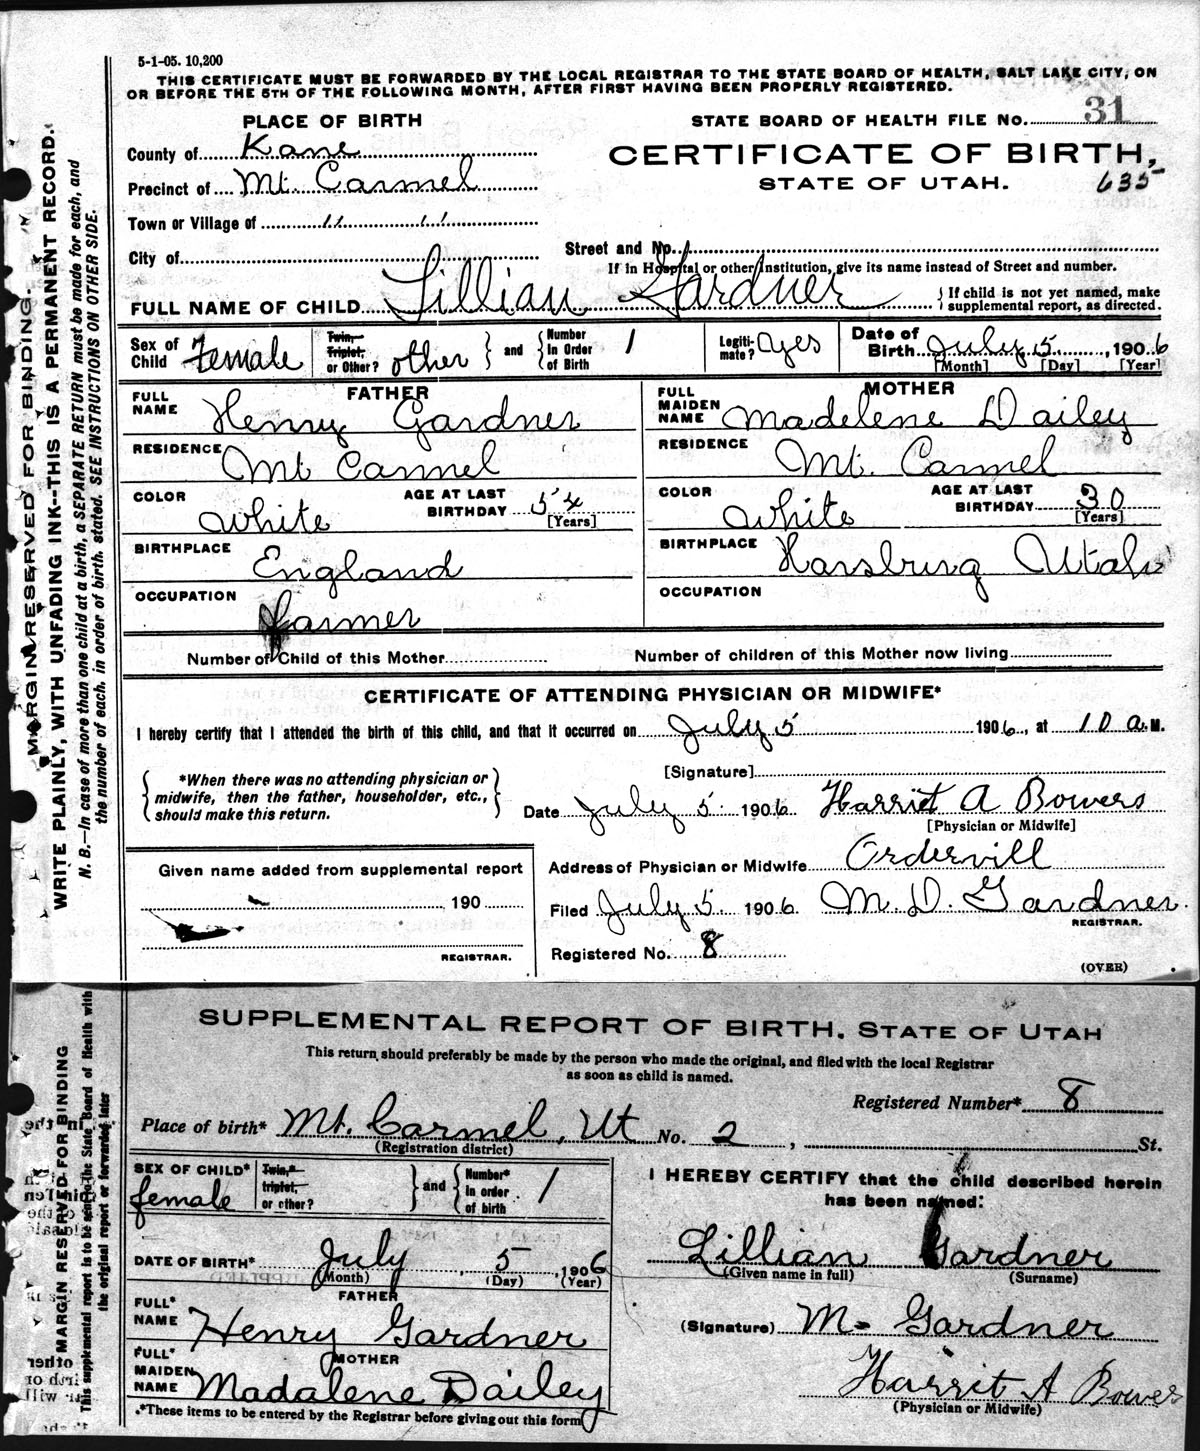 5-1-05. 10,200
THIS CERTIFICATE MUST BE FORWARDED BY THE LOCAL REGISTRAR TO THE STATE BOARD OF HEALTH, SALT LAKE CITY, ON
OR BEFORE THE 5TH OF THE FOLLOWING MONTH, AFTER FIRST HAVING BEEN PROPERLY REGISTERED.
PLACE OF BIRTH
STATE BOARD OF HEALTH FILE No. 31
County of Kane
CERTIFICATE OF BIRTH,
Precinct of Mt Carmel
STATE OF UTAH. 635
Town or Village of " "
City of
Street and No.
If in Hospital or other Institution, give its name instead of Street and number.
FULL NAME OF CHILD Lillian Gardner
} If child is not yet named, make
supplemental report, as directed.
Sex of Child Female
Twin, Triplet, or Other? other } and { Number In Order of Birth 1
Legiti-mate? yes
Date of Birth July 5, 1906
[Month] [Day] [Year]
FATHER
FULL NAME Henry Gardner
RESIDENCE Mt Carmel
COLOR white AGE AT LAST BIRTHDAY 54
[Years]
BIRTHPLACE England
OCCUPATION Farmer
MOTHER
FULL MAIDEN NAME Madelene Dailey
RESIDENCE Mt. Carmel
COLOR white AGE AT LAST BIRTHDAY 30
[Years]
BIRTHPLACE Harsburg Utah
OCCUPATION
Number of Child of this Mother
Number of children of this Mother now living
CERTIFICATE OF ATTENDING PHYSICIAN OR MIDWIFE*
I hereby certify that I attended the birth of this child, and that it occurred on July 5 1906, at 10 a.M.
{ *When there was no attending physician or
midwife, then the father, householder, etc.,
should make this return. }
[Signature]
Date July 5. 1906 Harriet A Bowers
[Physician or Midwife]
Given name added from supplemental report
190
REGISTRAR.
Address of Physician or Midwife Ordervill
Filed July 5. 1906 M. D. Gardner.
REGISTRAR.
Registered No. 8
(OVER)
MARGIN RESERVED FOR BINDING.
WRITE PLAINLY, WITH UNFADING INK--THIS IS A PERMANENT RECORD.
N. B.—In case of more than one child at a birth, a SEPARATE RETURN must be made for each, and
the number of each, in order of birth, stated. SEE INSTRUCTIONS ON OTHER SIDE.
SUPPLEMENTAL REPORT OF BIRTH. STATE OF UTAH
This return should preferably be made by the person who made the original, and filed with the local Registrar
as soon as child is named.
Registered Number* 8
Place of birth* Mt. Carmel, Ut No. 2, St.
(Registration district)
SEX OF CHILD* female
Twin,* triplet, or other? } and { Number* in order of birth 1
I HEREBY CERTIFY that the child described herein
has been named:
DATE OF BIRTH* July 5, 1906
(Month) (Day) (Year)
Lillian Gardner
(Given name in full) (Surname)
FATHER
FULL* NAME Henry Gardner
(Signature) M. Gardner
MOTHER
FULL* MAIDEN NAME Madalene Dailey
Harrit A Bowers
(Physician or Midwife)
*These items to be entered by the Registrar before giving out this form
MARGIN RESERVED FOR BINDING
This supplemental report is to be sent to the State Board of Health with
the original report or forwarded later